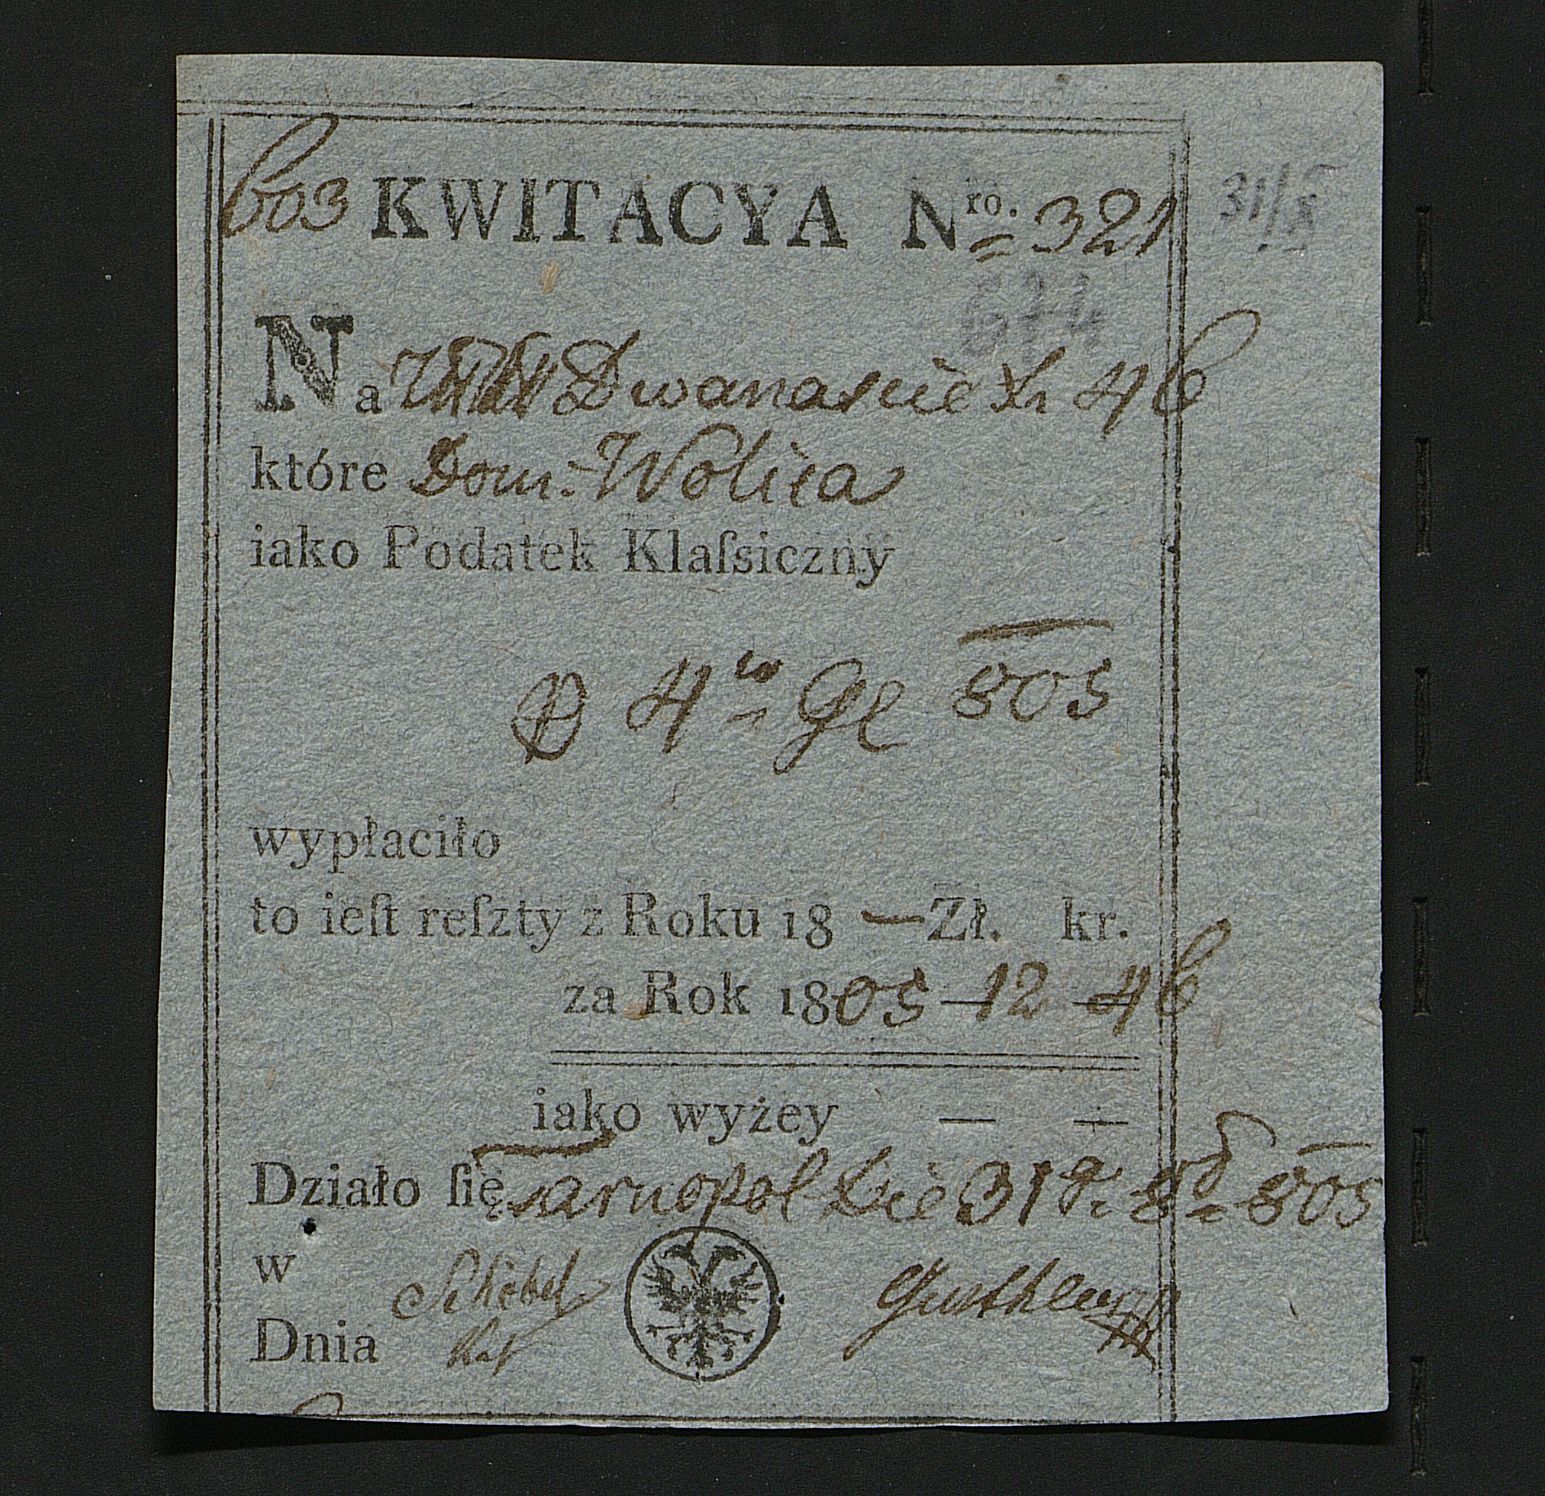 603 KWITACYA Nro. 321
31/8
Na Dwanascie Xr 46
które Dom. Wolica
iako Podatek Klaſsiczny
4to 805
wypłaciło
to ieſt reſzty z Roku 18 — Zł. kr.
za Rok 1805 — 12 — 46
iako wyżey — —
Działo ſię Tarnopol 31 8 805
w
Dnia